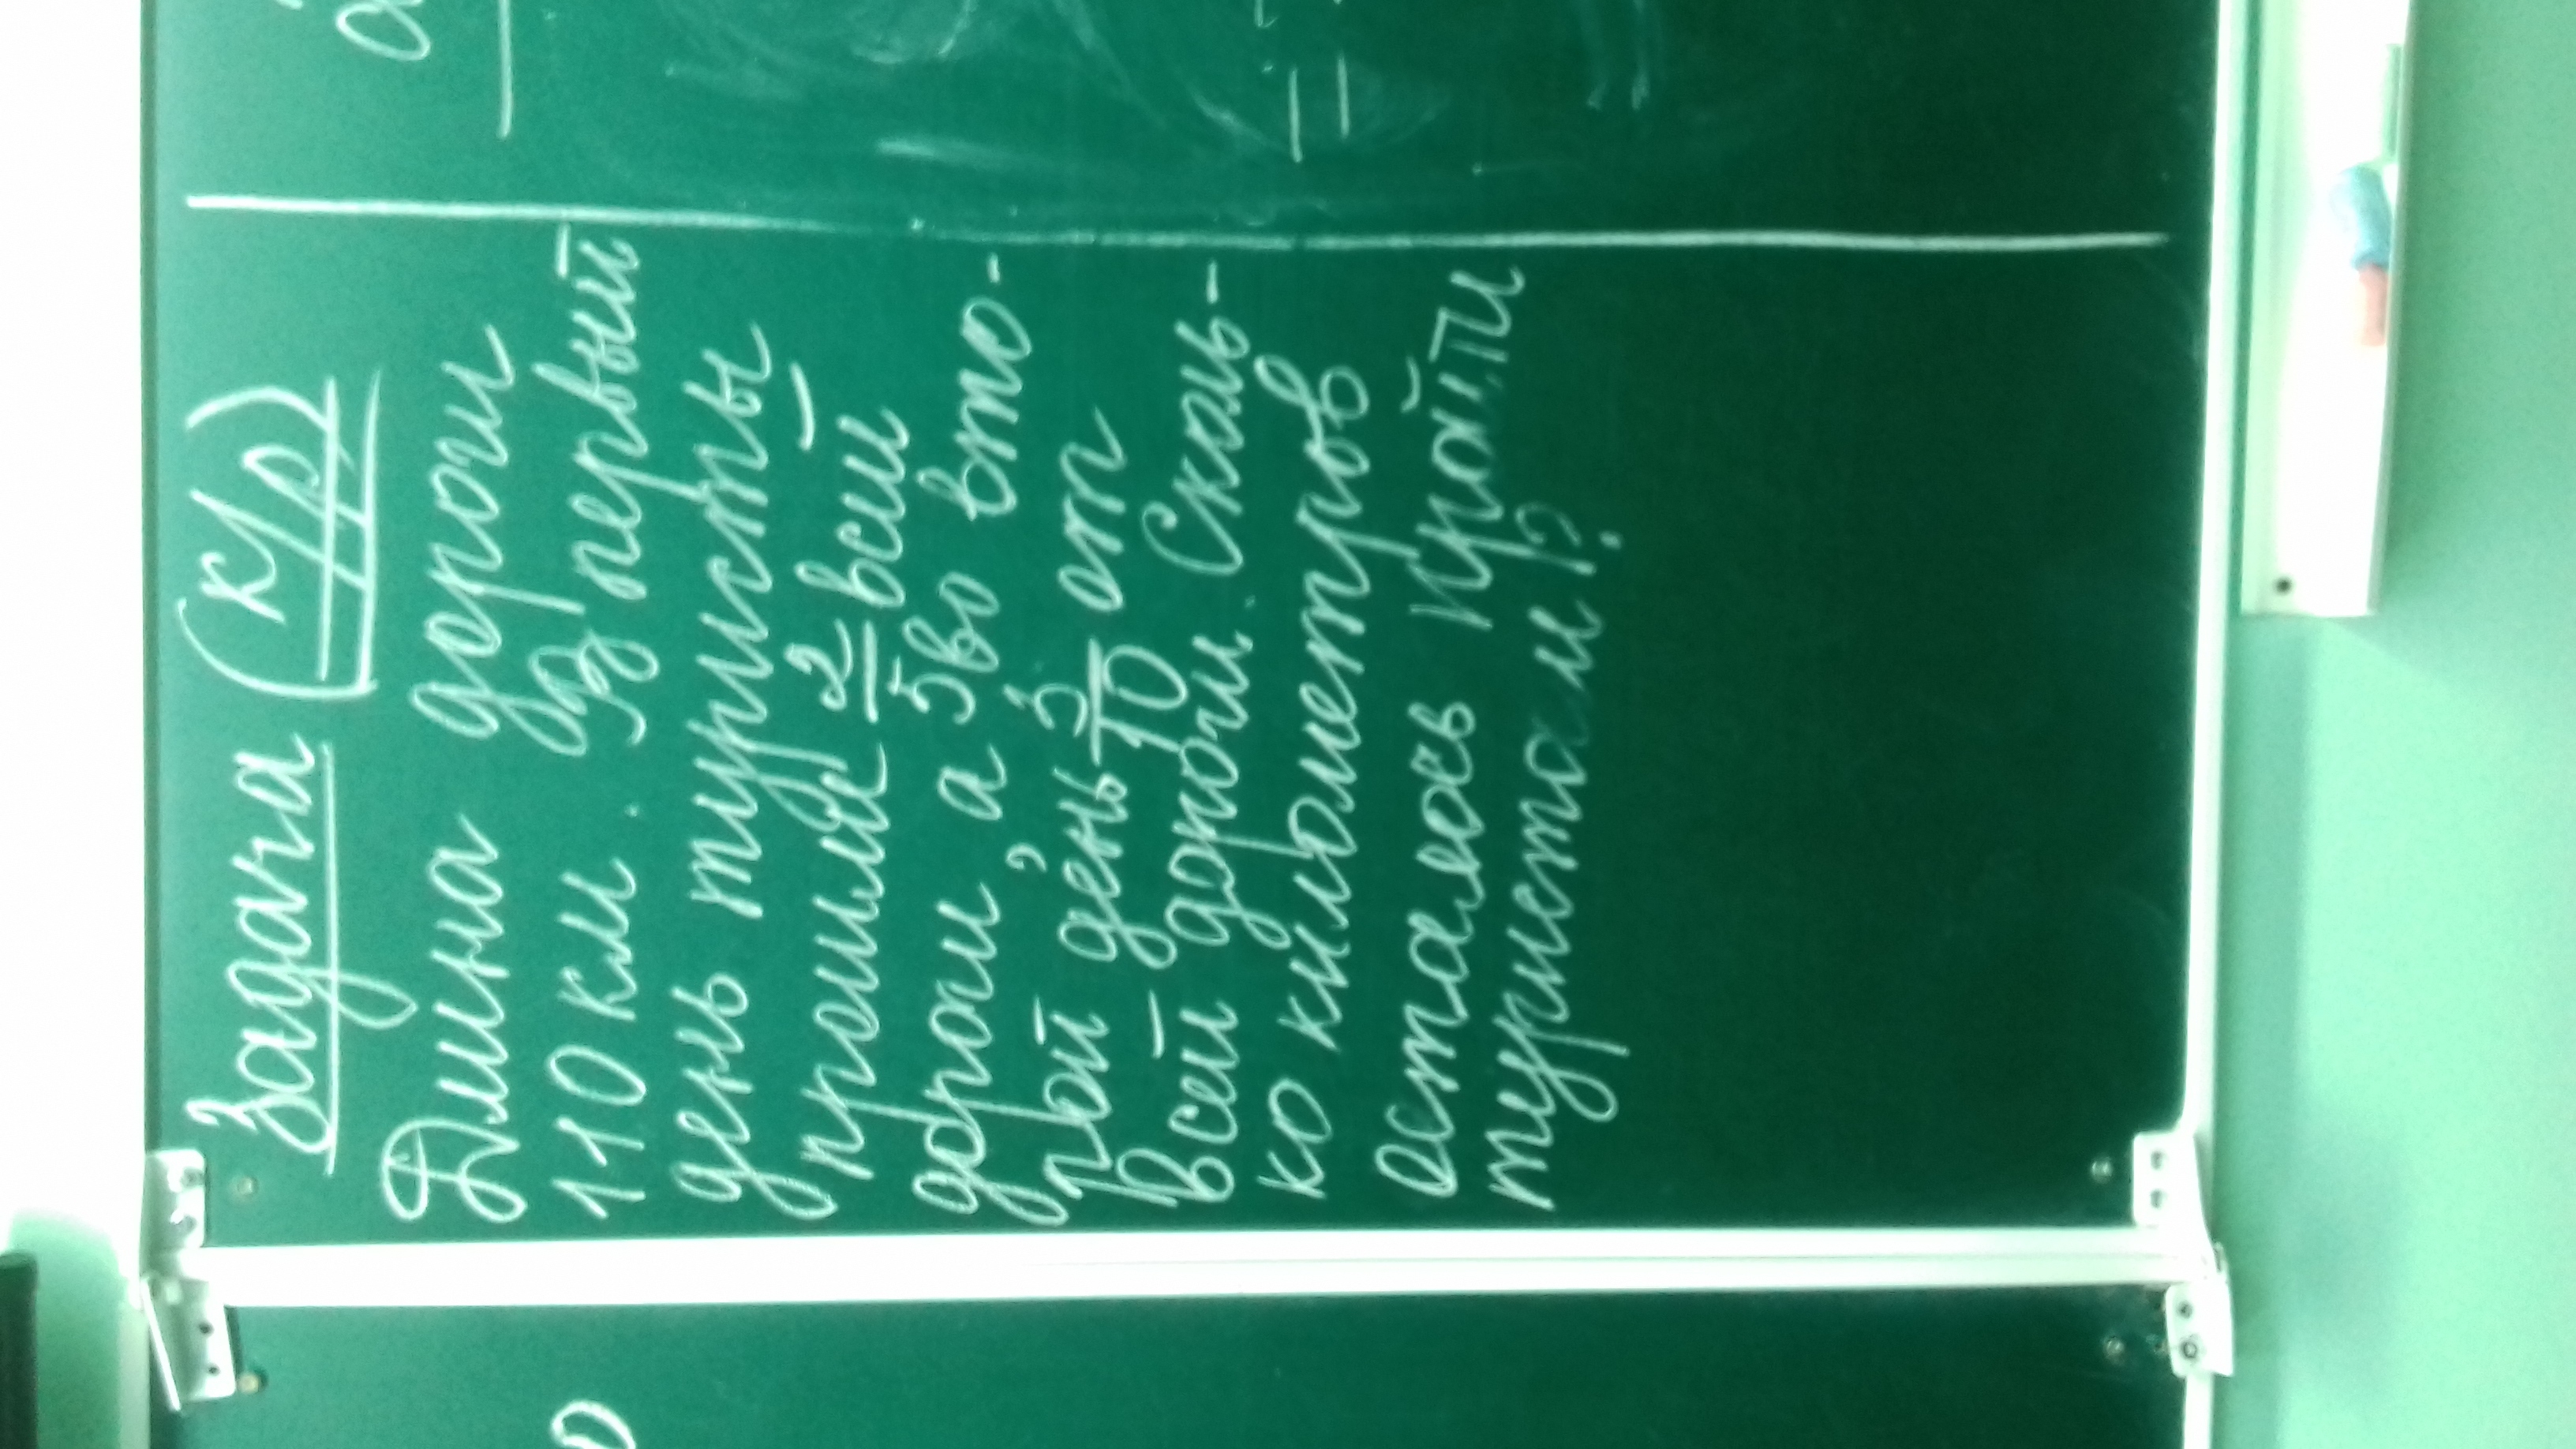 Задача (к/р)
Длина дороги
110 км. За первый
день туристы
прошли 2/5 всей
дороги, а во вто-
рой день 3/10 от
всей дороги. Сколь-
ко километров
осталось пройти
туристам?